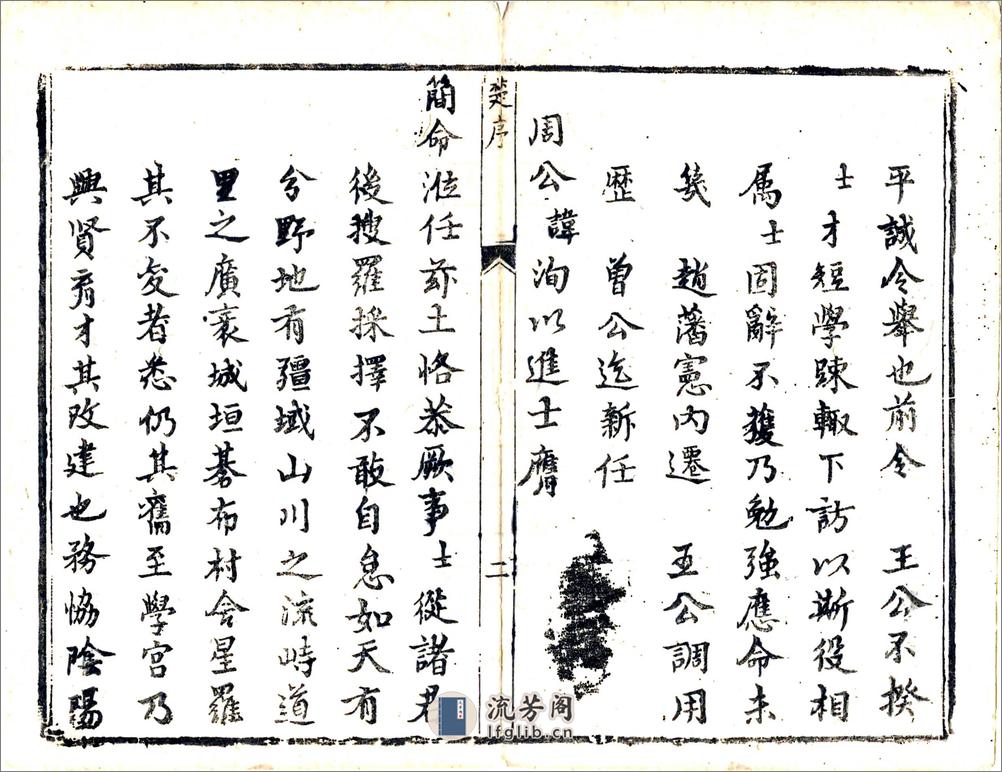 平誠令舉也前令 王公不揆
士才短學踈輙下訪以斯役相
属士固辭不獲乃勉強應命未
幾 趙藩憲内遷 王公調用
歴 曽公迄新任
周公諱洵以進士膺
楚序 二
簡命涖任茲土恪恭厥事士從諸君
後搜羅採擇不敢自怠如天有
分野地有疆域山川之流峙道
里之廣袤城垣碁布村舍星羅
其不变者悉仍其舊至學宮乃
興賢育才其改建也務恊陰陽
流芳阁
lfglib.cn